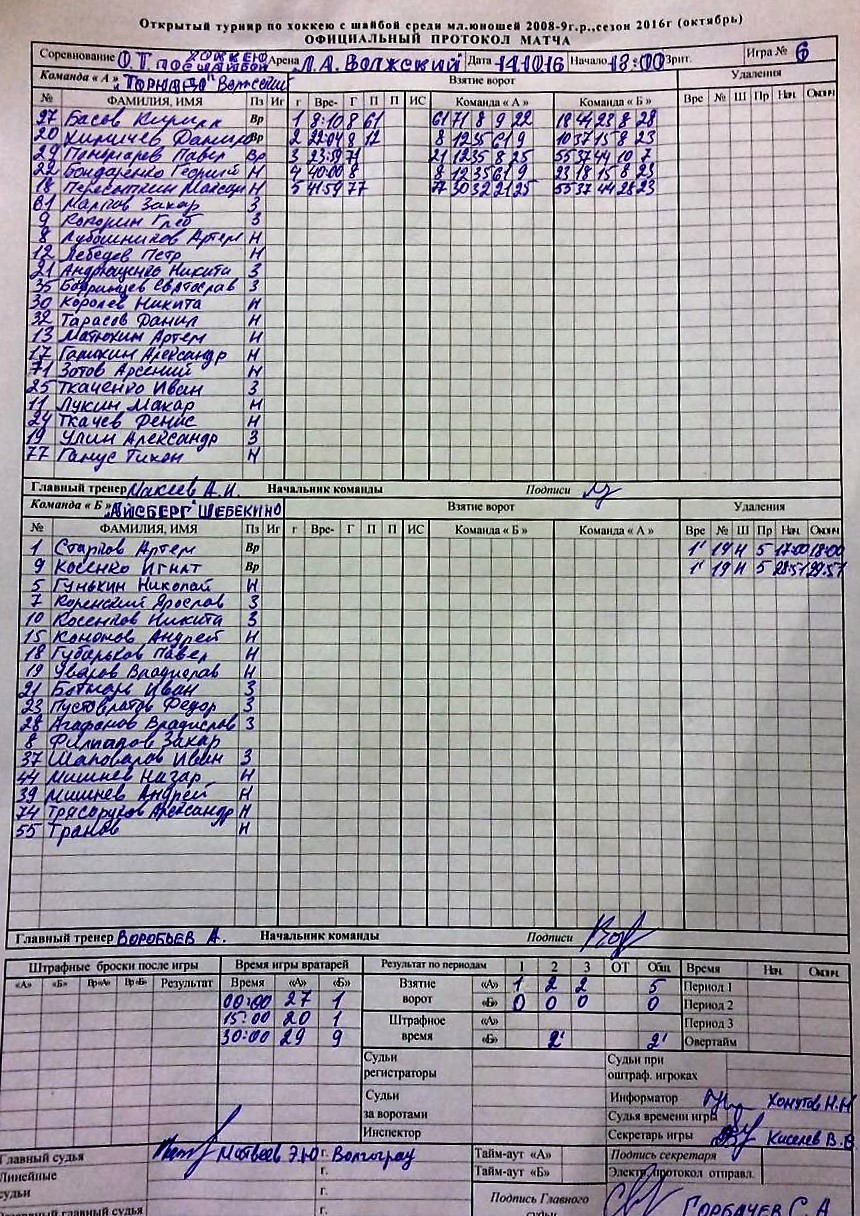 Открытый турнир по хоккею с шайбой среди мл.юношей 2008-9г.р.,сезон 2016г (октябрь)
ОФИЦИАЛЬНЫЙ ПРОТОКОЛ МАТЧА
Соревнование ОТ по хоккею с шайбой Арена Л.А. Волжский Дата 14.10.16 Начало 18:00 Зрит. Игра № 6
Команда « А » "Торнадо" Волжский Взятие ворот Удаления
№ ФАМИЛИЯ, ИМЯ Пз Иг г Вре- Г П П ИС Команда « А » Команда « Б » Вре № Ш Пр Нач. Оконч
27 Басов Кирилл Вр 1 8:10 8 61 61 71 8 9 22 18 44 23 8 28
20 Вр 2 22:04 9 12 8 12 35 61 9 10 37 15 8 23
29 Павел Вр 3 23:59 71 21 12 35 8 25 55 37 44 10 7
22 Бондаренко Георгий Н 4 40:00 8 8 12 35 61 9 23 18 15 8 23
18 Н 5 41:59 77 77 30 32 21 25 55 37 44 28 23
Захар З
9 Глеб З
8 Артем Н
12 Лебедев Петр Н
21 Андрющенко Никита З
35 Святослав З
30 Королев Никита Н
32 Тарасов Данил Н
13 Матюхин Артем Н
17 Александр Н
71 Зотов Арсений Н
25 Ткаченко Иван З
11 Лукин Макар Н
24 Ткачев Денис Н
19 Улин Александр З
77 Ганус Тихон Н
Главный тренер Макеев А.И. Начальник команды Подписи
Команда « Б » "АЙСБЕРГ" ШЕБЕКИНО Взятие ворот Удаления
№ ФАМИЛИЯ, ИМЯ Пз Иг г Вре- Г П П ИС Команда « Б » Команда « А » Вре № Ш Пр Нач. Оконч
1 Артем Вр 1' 19 Н 5 17:00 18:00
9 Косенко Игнат Вр 1' 19 Н 5 28:57 29:57
5 Гунькин Николай Н
7 Коренской Ярослав З
10 Косенков Никита З
15 Кононов Андрей Н
18 Губарьков Павел Н
19 Уваров Владислав Н
21 Ботнарь Иван З
23 Пустоватов Федор З
28 Агафонов Владислав З
8 Захар
37 Шаповалов Иван З
44 Мишнев Назар Н
39 Мишнев Андрей Н
74 Трясоруков Александр Н
55 Транов Н
Главный тренер Воробьев А. Начальник команды Подписи
Штрафные броски после игры Время игры вратарей Результат по периодам 1 2 3 ОТ Общ Время Нач. Оконч.
«А» «Б» Вр«А» Вр«Б» Результат Время «А» «Б» Взятие ворот «А» 1 2 2 5 Период 1
00:00 27 1 «Б» 0 0 0 0 Период 2
15:00 20 1 Штрафное время «А» Период 3
30:00 29 9 «Б» 2' 2' Овертайм
Судьи регистраторы Судьи при оштраф. игроках
Судьи за воротами Информатор Хомутов Н.Н
Судья времени игры
Инспектор Секретарь игры Киселев В.В
Главный судья Матвеев Э.Ю г. Волгоград Тайм-аут «А» Подпись секретаря
Линейные судьи г. Тайм-аут «Б» Электр. протокол отправл.
г. Подпись Главного судьи ГОРБАЧЕВ С.А
главный судья г.